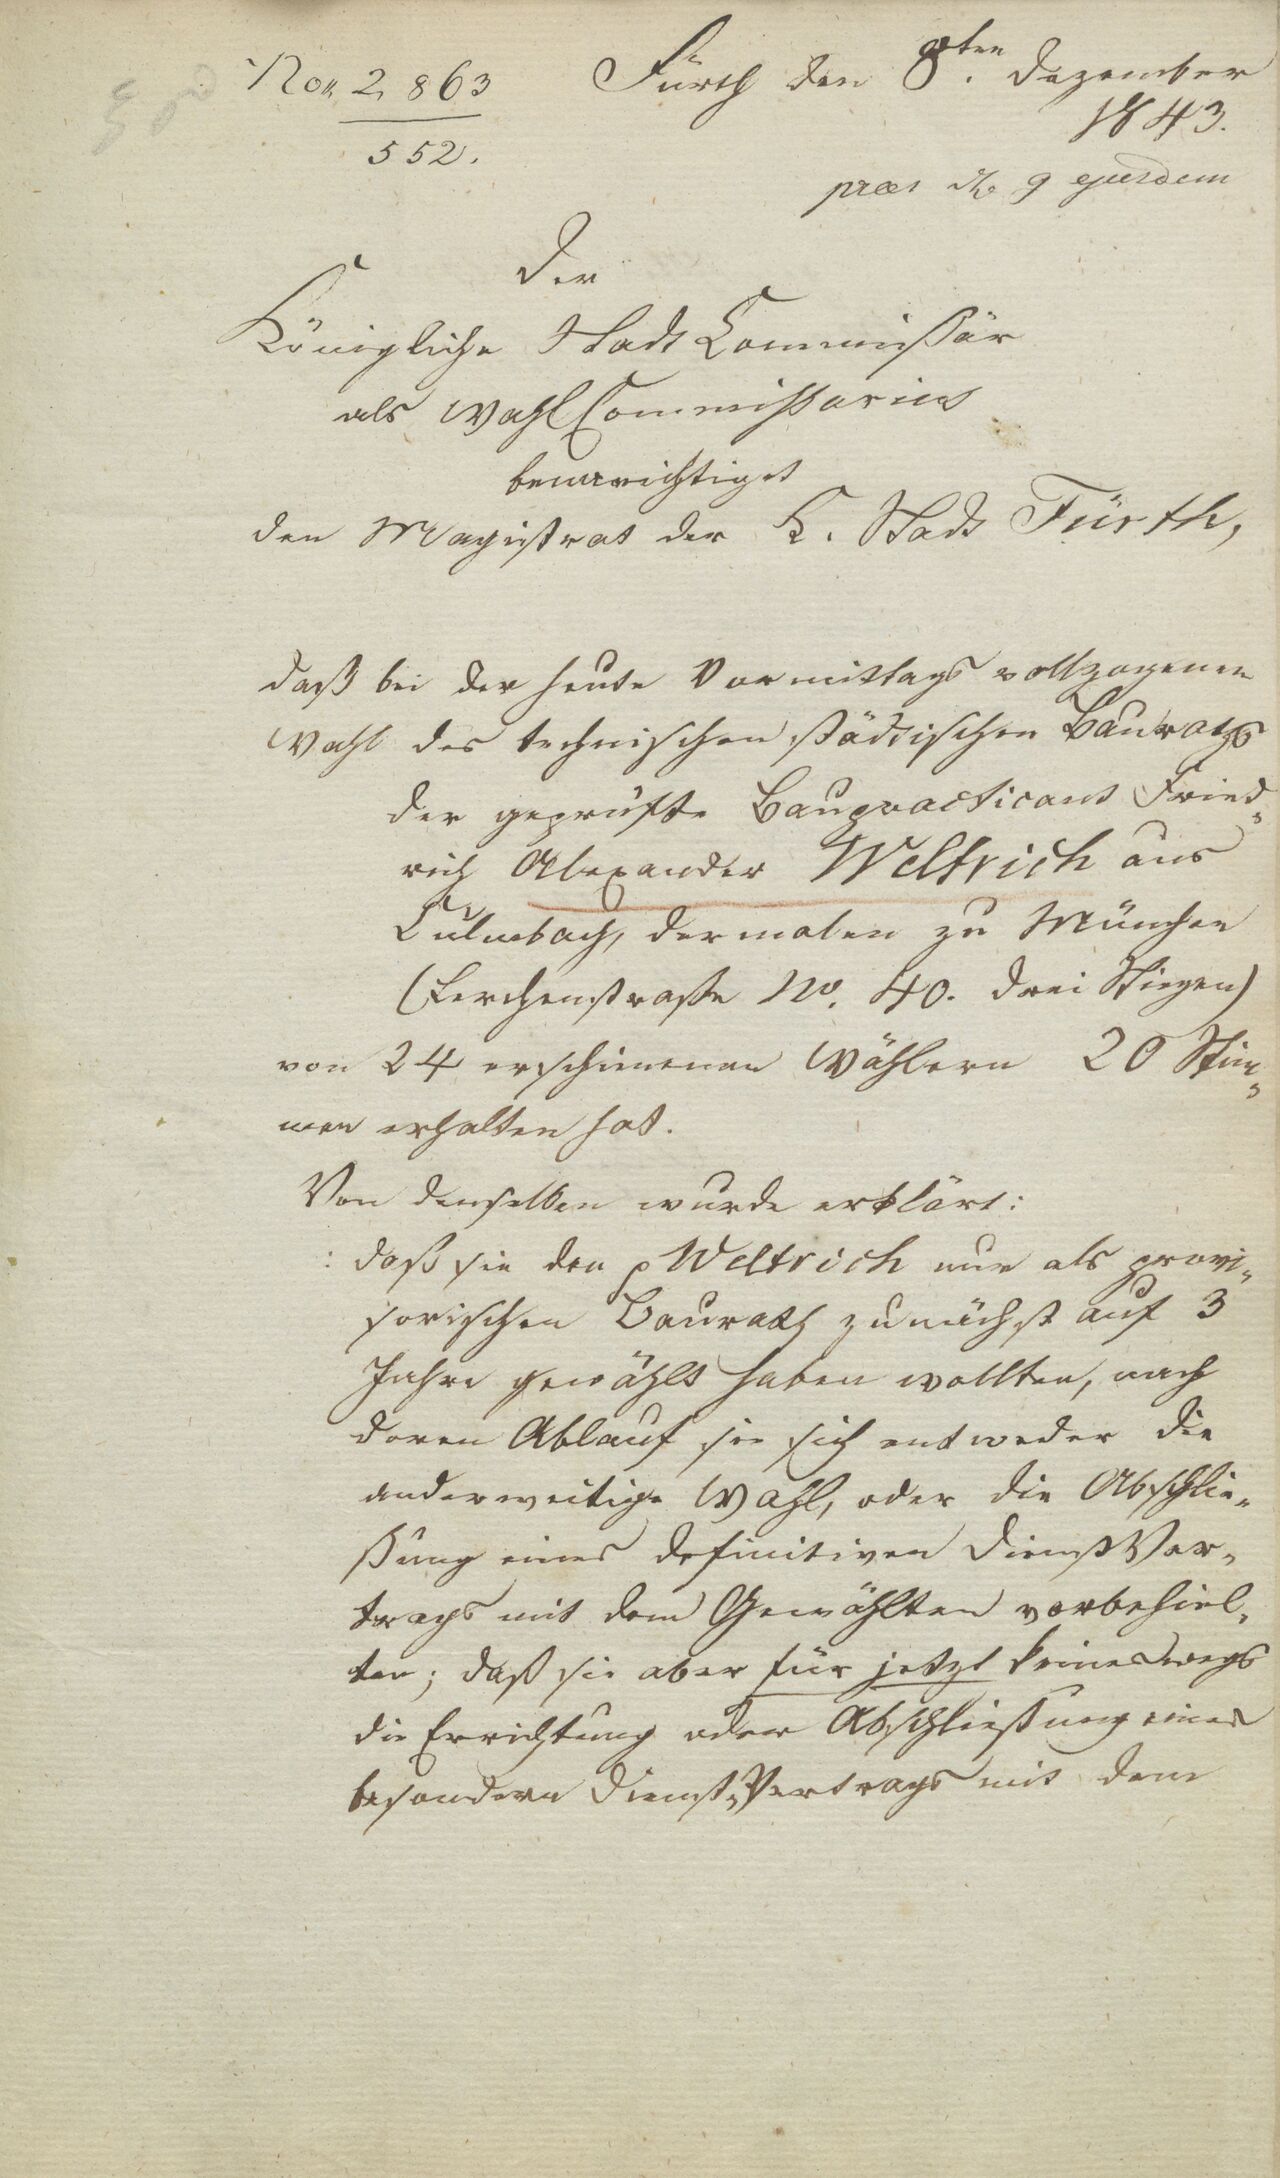 No. 2863
552.
Fürth den 8ten. Dezember
1843.
praes d. 9 ejusdem
Der
Königliche Stadt Commißär
als Wahl Commißarius
benachrichtiget
den Magistrat der K. Stadt Fürth,
daß bei der heute Vormittags vollzogenen
Wahl des technischen städtischen Bauraths
der geprüfte Baupracticant Fried-
rich Alexander Weltrich aus
Culmbach, dermalen zu München
(Lerchenstraße No. 40. drei Stiegen)
von 24 erschienenen Wählern 20 Stim-
men erhalten hat.
Von denselben wurde erklärt:
: daß sie den p Weltrich nur als provi-
sorischen Baurath zunächst auf 3
Jahre gewählt haben wollten, nach
deren Ablauf sie sich entweder die
anderweitige Wahl, oder die Abschlie-
ßung eines definitiven Dienst Ver-
trags mit dem Gewählten vorbehiel-
ten; daß sie aber für jetzt keineswegs
die Errichtung oder Abschließung eines
besondern Dienst-Vertrags mit dem